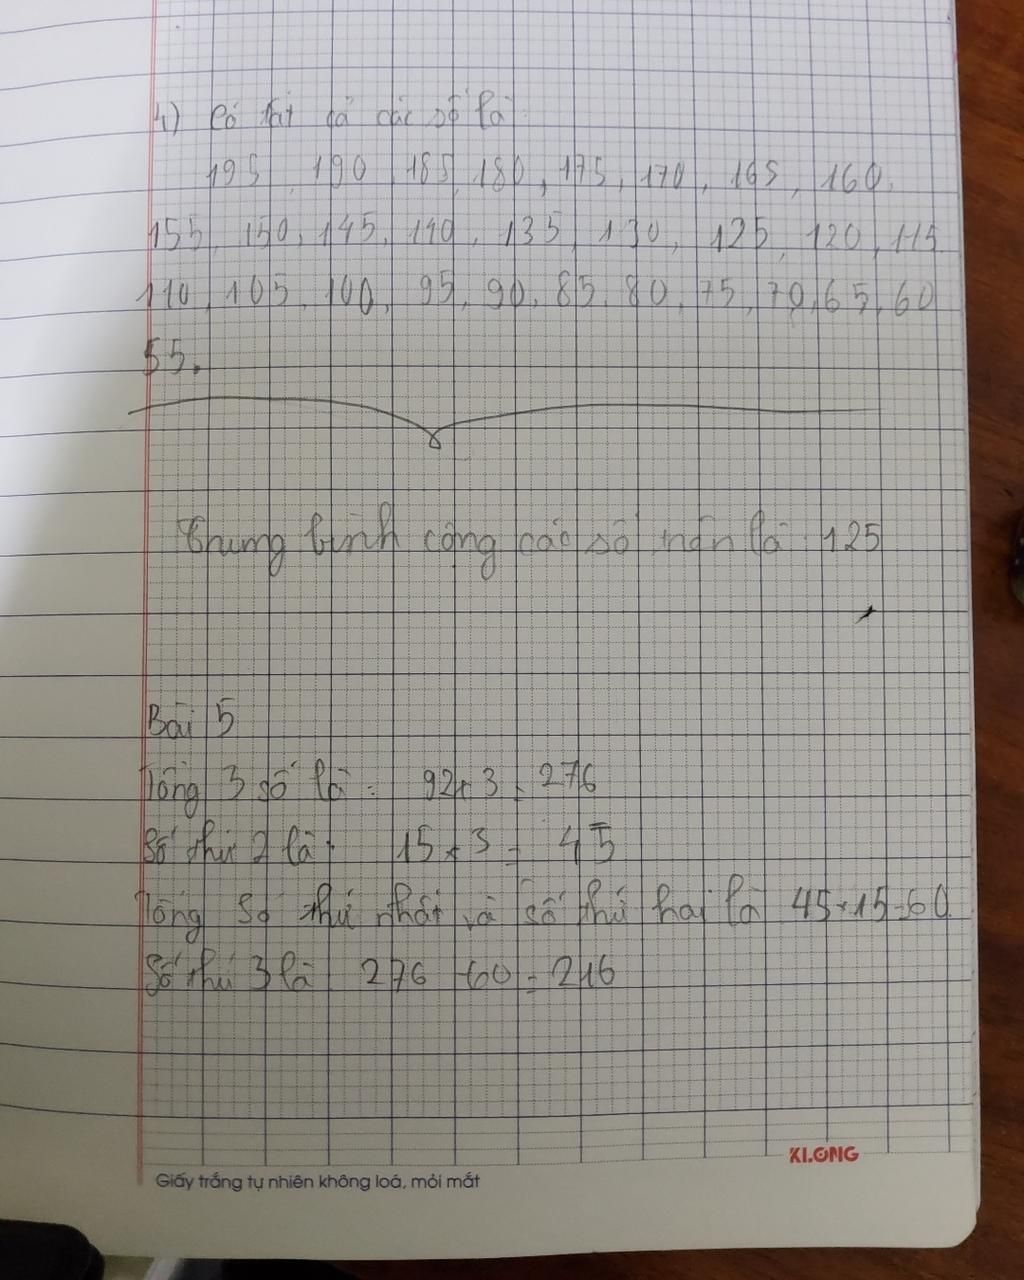 4) Có tất cả các số là
195, 190, 185, 180, 175, 170, 165, 160,
155, 150, 145, 140, 135, 130, 125, 120, 115
110, 105, 100, 95, 90, 85, 80, 75, 70, 65, 60
55.
Trung bình cộng các số trên là 125
Bài 5
Tổng 3 số là : 92 x 3 = 276
Số thứ 2 là : 15 x 3 = 45
Tổng số thứ nhất và số thứ hai là 45+15=60
Số thứ 3 là 276 - 60 = 216
KLONG
Giấy trắng tự nhiên không loá, mỏi mắt